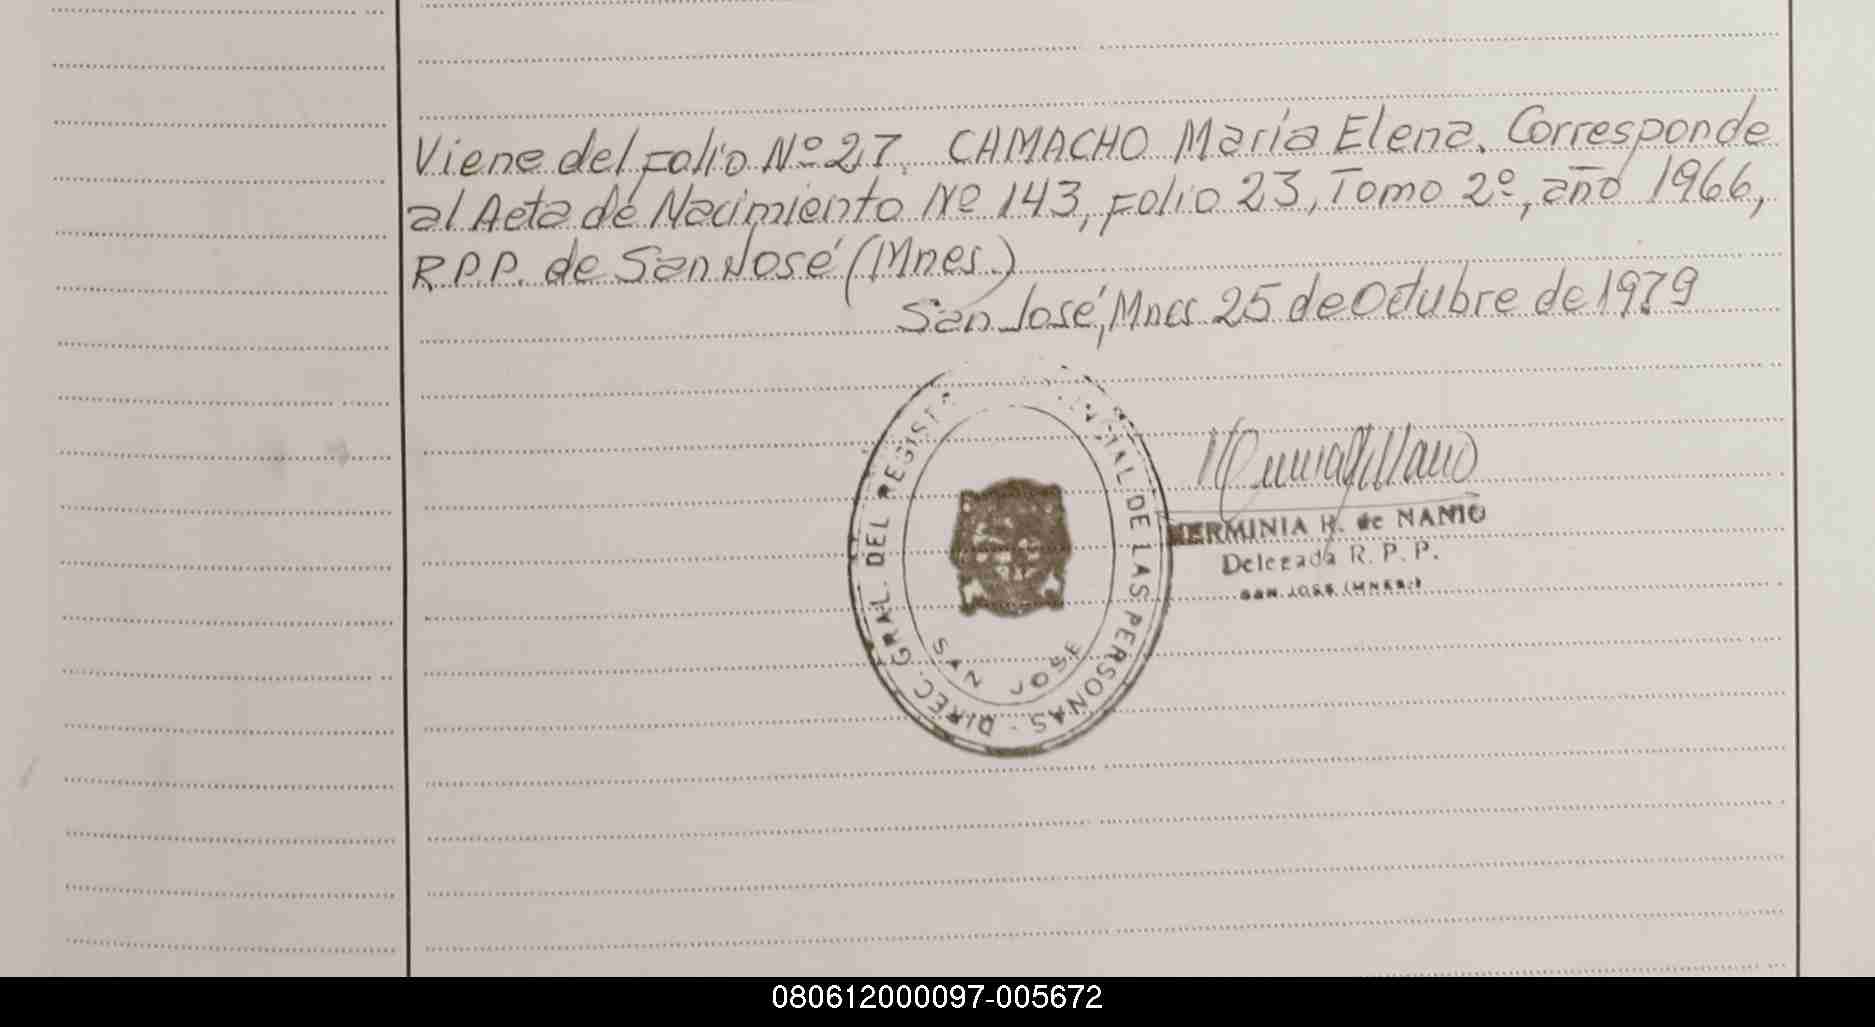 Viene del folio Nº 27. CAMACHO María Elena. Corresponde
al Acta de Nacimiento Nº 143, folio 23, Tomo 2º, año 1966,
R.P.P. de San José (Mnes.)
San José, Mnes 25 de Octubre de 1979
DIREC. GRAL. DEL REGISTR DE LAS PERSONAS -
SAN JOSE
HERMINIA R. de NANIO
Delegada R. P. P.
SAN JOSE (MNES.)
080612000097-005672